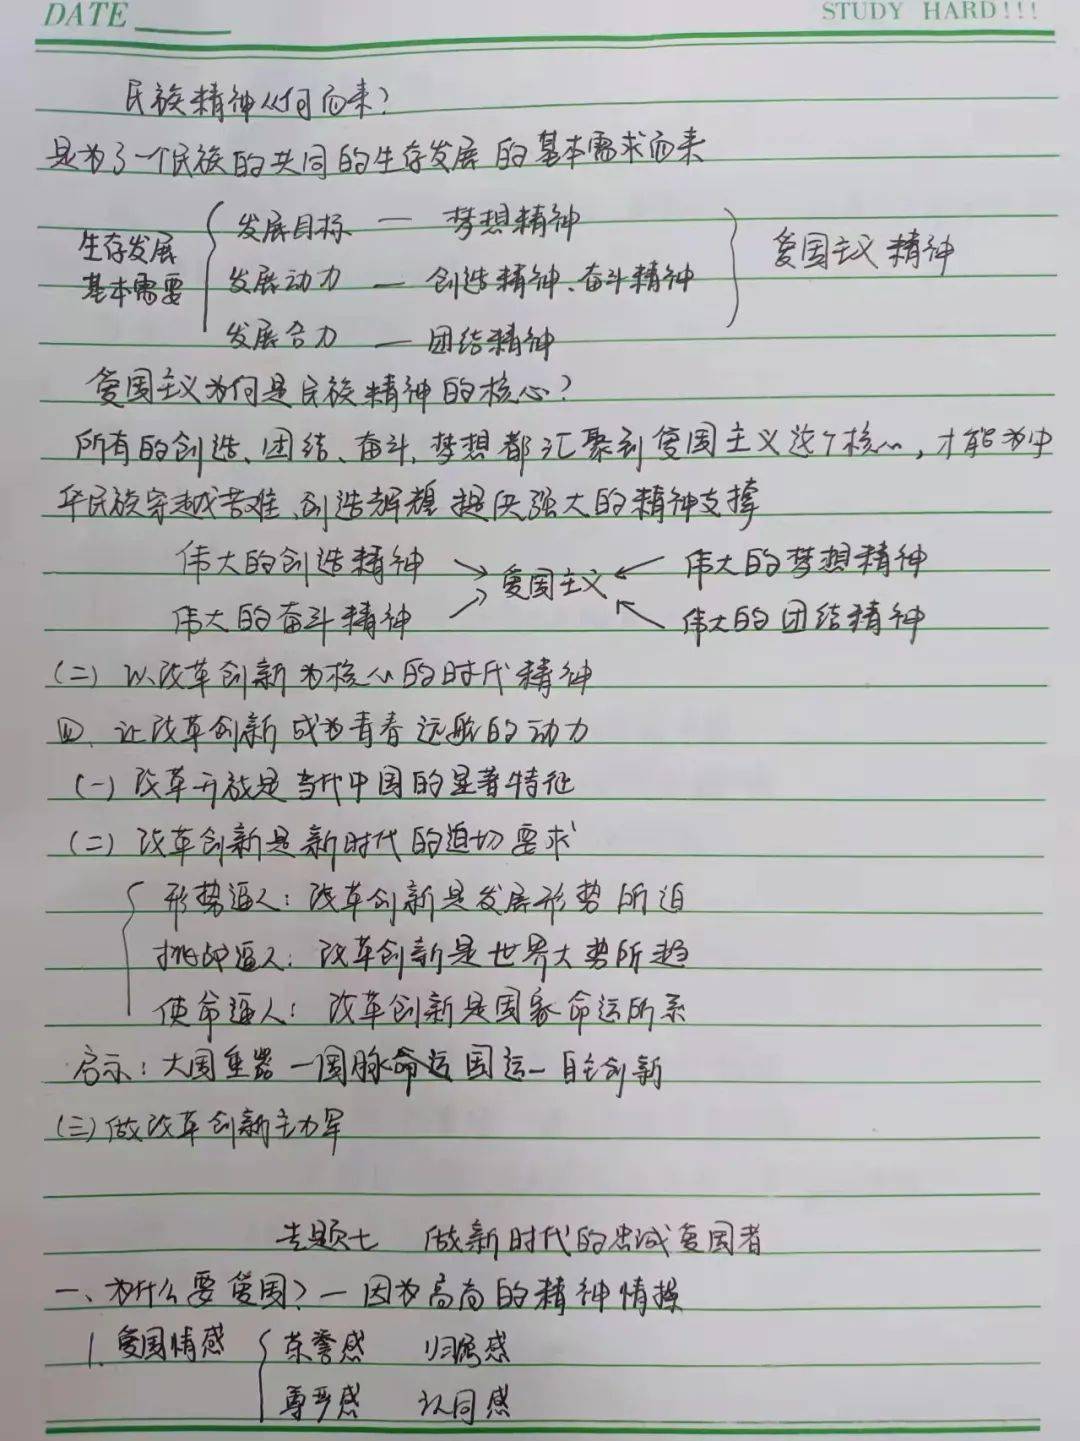 DATE
STUDY HARD!!!
民族精神从何而来?
是为了一个民族的共同的生存发展的基本需求而来
发展目标 — 梦想精神
生存发展
基本需要
发展动力 — 创造精神、奋斗精神
爱国主义精神
发展合力 — 团结精神
爱国主义为何是民族精神的核心?
所有的创造、团结、奋斗、梦想都汇聚到爱国主义这个核心,才能为中
华民族穿越苦难、创造辉煌提供强大的精神支撑
伟大的创造精神
爱国主义
伟大的梦想精神
伟大的奋斗精神
伟大的团结精神
(二) 以改革创新为核心的时代精神
四、让改革创新成为青春远航的动力
(一) 改革开放是当代中国的显著特征
(二) 改革创新是新时代的迫切要求
形势逼人: 改革创新是发展形势所迫
挑战逼人: 改革创新是世界大势所趋
使命逼人: 改革创新是国家命运所系
启示: 大国重器—国脉命运国运—自主创新
(三) 做改革创新主力军
专题七 做新时代的忠诚爱国者
一、为什么要爱国?—因为高尚的精神情操
1. 爱国情感
荣誉感 归属感
尊严感 认同感